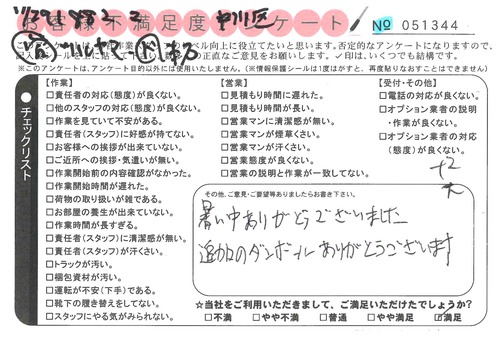 お客様不満足度アンケート
中川区
№ 051344
ル向上に役立てたいと思います。否定的なアンケートになりますので、
直なご意見をお願いします。✓印は、いくつでも結構です。
※このアンケートは、アンケート目的以外には使用いたしません。(※情報保護シールは1度はがすと、再度貼りなおすことはできません)
チェックリスト
【作業】
□責任者の対応(態度)が良くない。
□他のスタッフの対応(態度)が良くない。
□作業を見ていて不安がある。
□責任者(スタッフ)に好感が持てない。
□お客様への挨拶が出来ていない。
□ご近所への挨拶・気遣いが無い。
□作業開始前の内容確認がなかった。
□作業開始時間が遅れた。
□荷物の取り扱いが雑である。
□お部屋の養生が出来ていない。
□作業時間が長すぎる。
□責任者(スタッフ)に清潔感が無い。
□責任者(スタッフ)が汗くさい。
□トラックが汚い。
□梱包資材が汚い。
□運転が不安(下手)である。
□靴下の履き替えをしてない。
□スタッフにやる気がみられない。
【営業】
□見積もり時間に遅れた。
□見積もり時間が長い。
□営業マンに清潔感が無い。
□営業マンが煙草くさい。
□営業マンが汗くさい。
□営業態度が良くない。
□営業の説明と作業が一致してない。
【受付・その他】
□電話の対応が良くない。
□オプション業者の説明
・作業が良くない。
□オプション業者の対応
(態度)が良くない。
その他、ご意見・ご要望等ありましたらお書き下さい。
暑い中ありがとうございました
追加のダンボールありがとうございます
☆当社をご利用いただきまして、ご満足いただけたでしょうか?
□不満 □やや不満 □普通 □やや満足 ☑満足